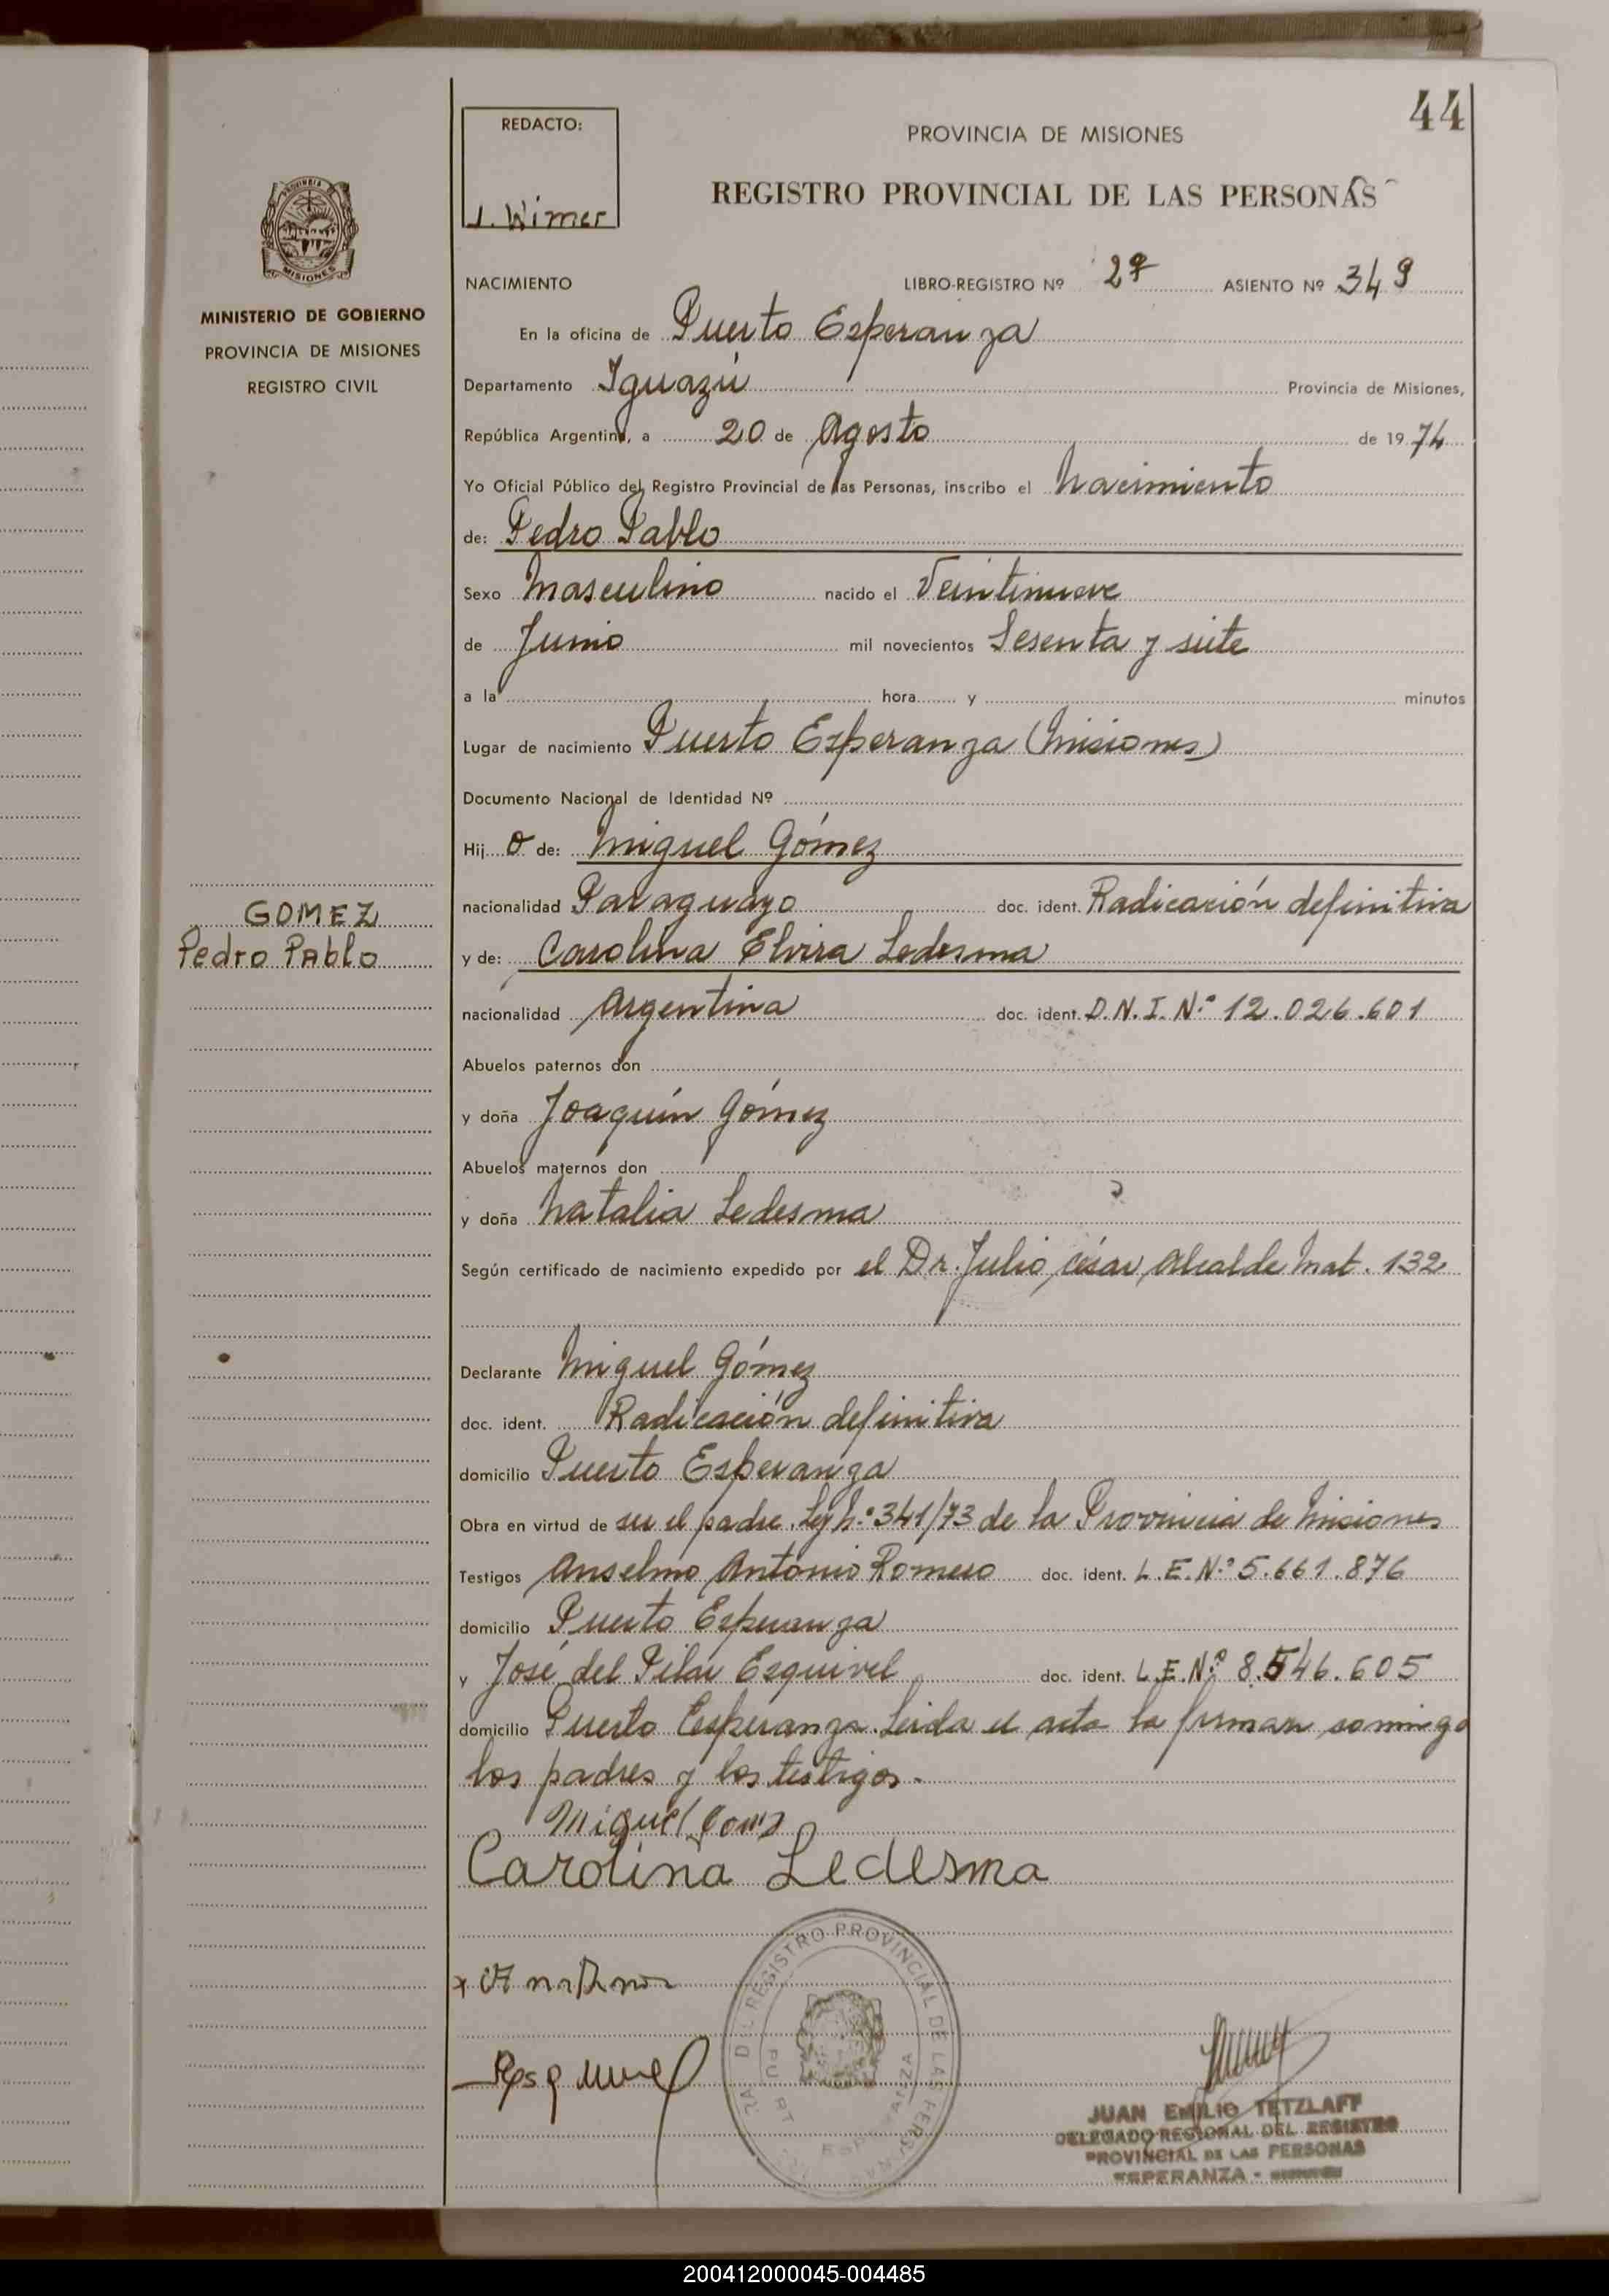 44
REDACTO:
J. Wimer
PROVINCIA DE MISIONES
REGISTRO PROVINCIAL DE LAS PERSONAS
PROVINCIA DE
MISIONES
MINISTERIO DE GOBIERNO
PROVINCIA DE MISIONES
REGISTRO CIVIL
NACIMIENTO LIBRO-REGISTRO Nº 27 ASIENTO Nº 349
En la oficina de Puerto Esperanza
Departamento Iguazú Provincia de Misiones,
República Argentina, a 20 de Agosto de 1974
Yo Oficial Público del Registro Provincial de las Personas, inscribo el Nacimiento
de: Pedro Pablo
Sexo Masculino nacido el Veintinueve
de Junio mil novecientos Sesenta y siete
a la hora y minutos
Lugar de nacimiento Puerto Esperanza (Misiones)
Documento Nacional de Identidad Nº
Hijo de: Miguel Gómez
GOMEZ
Pedro Pablo
nacionalidad Paraguayo doc. ident. Radicación definitiva
y de: Carolina Elvira Ledesma
nacionalidad Argentina doc. ident. D.N.I.N.º 12.026.601
Abuelos paternos don
y doña Joaquín Gómez
Abuelos maternos don
y doña Natalia Ledesma
Según certificado de nacimiento expedido por el Dr. Julio César Alcalde Mat. 132
Declarante Miguel Gómez
doc. ident. Radicación definitiva
domicilio Puerto Esperanza
Obra en virtud de ser el padre. Ley N.º 341/73 de la Provincia de Misiones
Testigos Anselmo Antonio Romero doc. ident. L.E.N.º 5.661.876
domicilio Puerto Esperanza
y José del Pilar Esquivel doc. ident. L.E.N.º 8.546.605
domicilio Puerto Esperanza. Leida el acta la firman conmigo
los padres y los testigos.
Miguel Gomz
Carolina Ledesma
DEL REGISTRO PROVINCIAL DE LAS PERSONAS
ESPERANZA
JUAN EMILIO TETZLAFF
DELEGADO REGIONAL DEL REGISTRO
PROVINCIAL DE LAS PERSONAS
ESPERANZA -
200412000045-004485